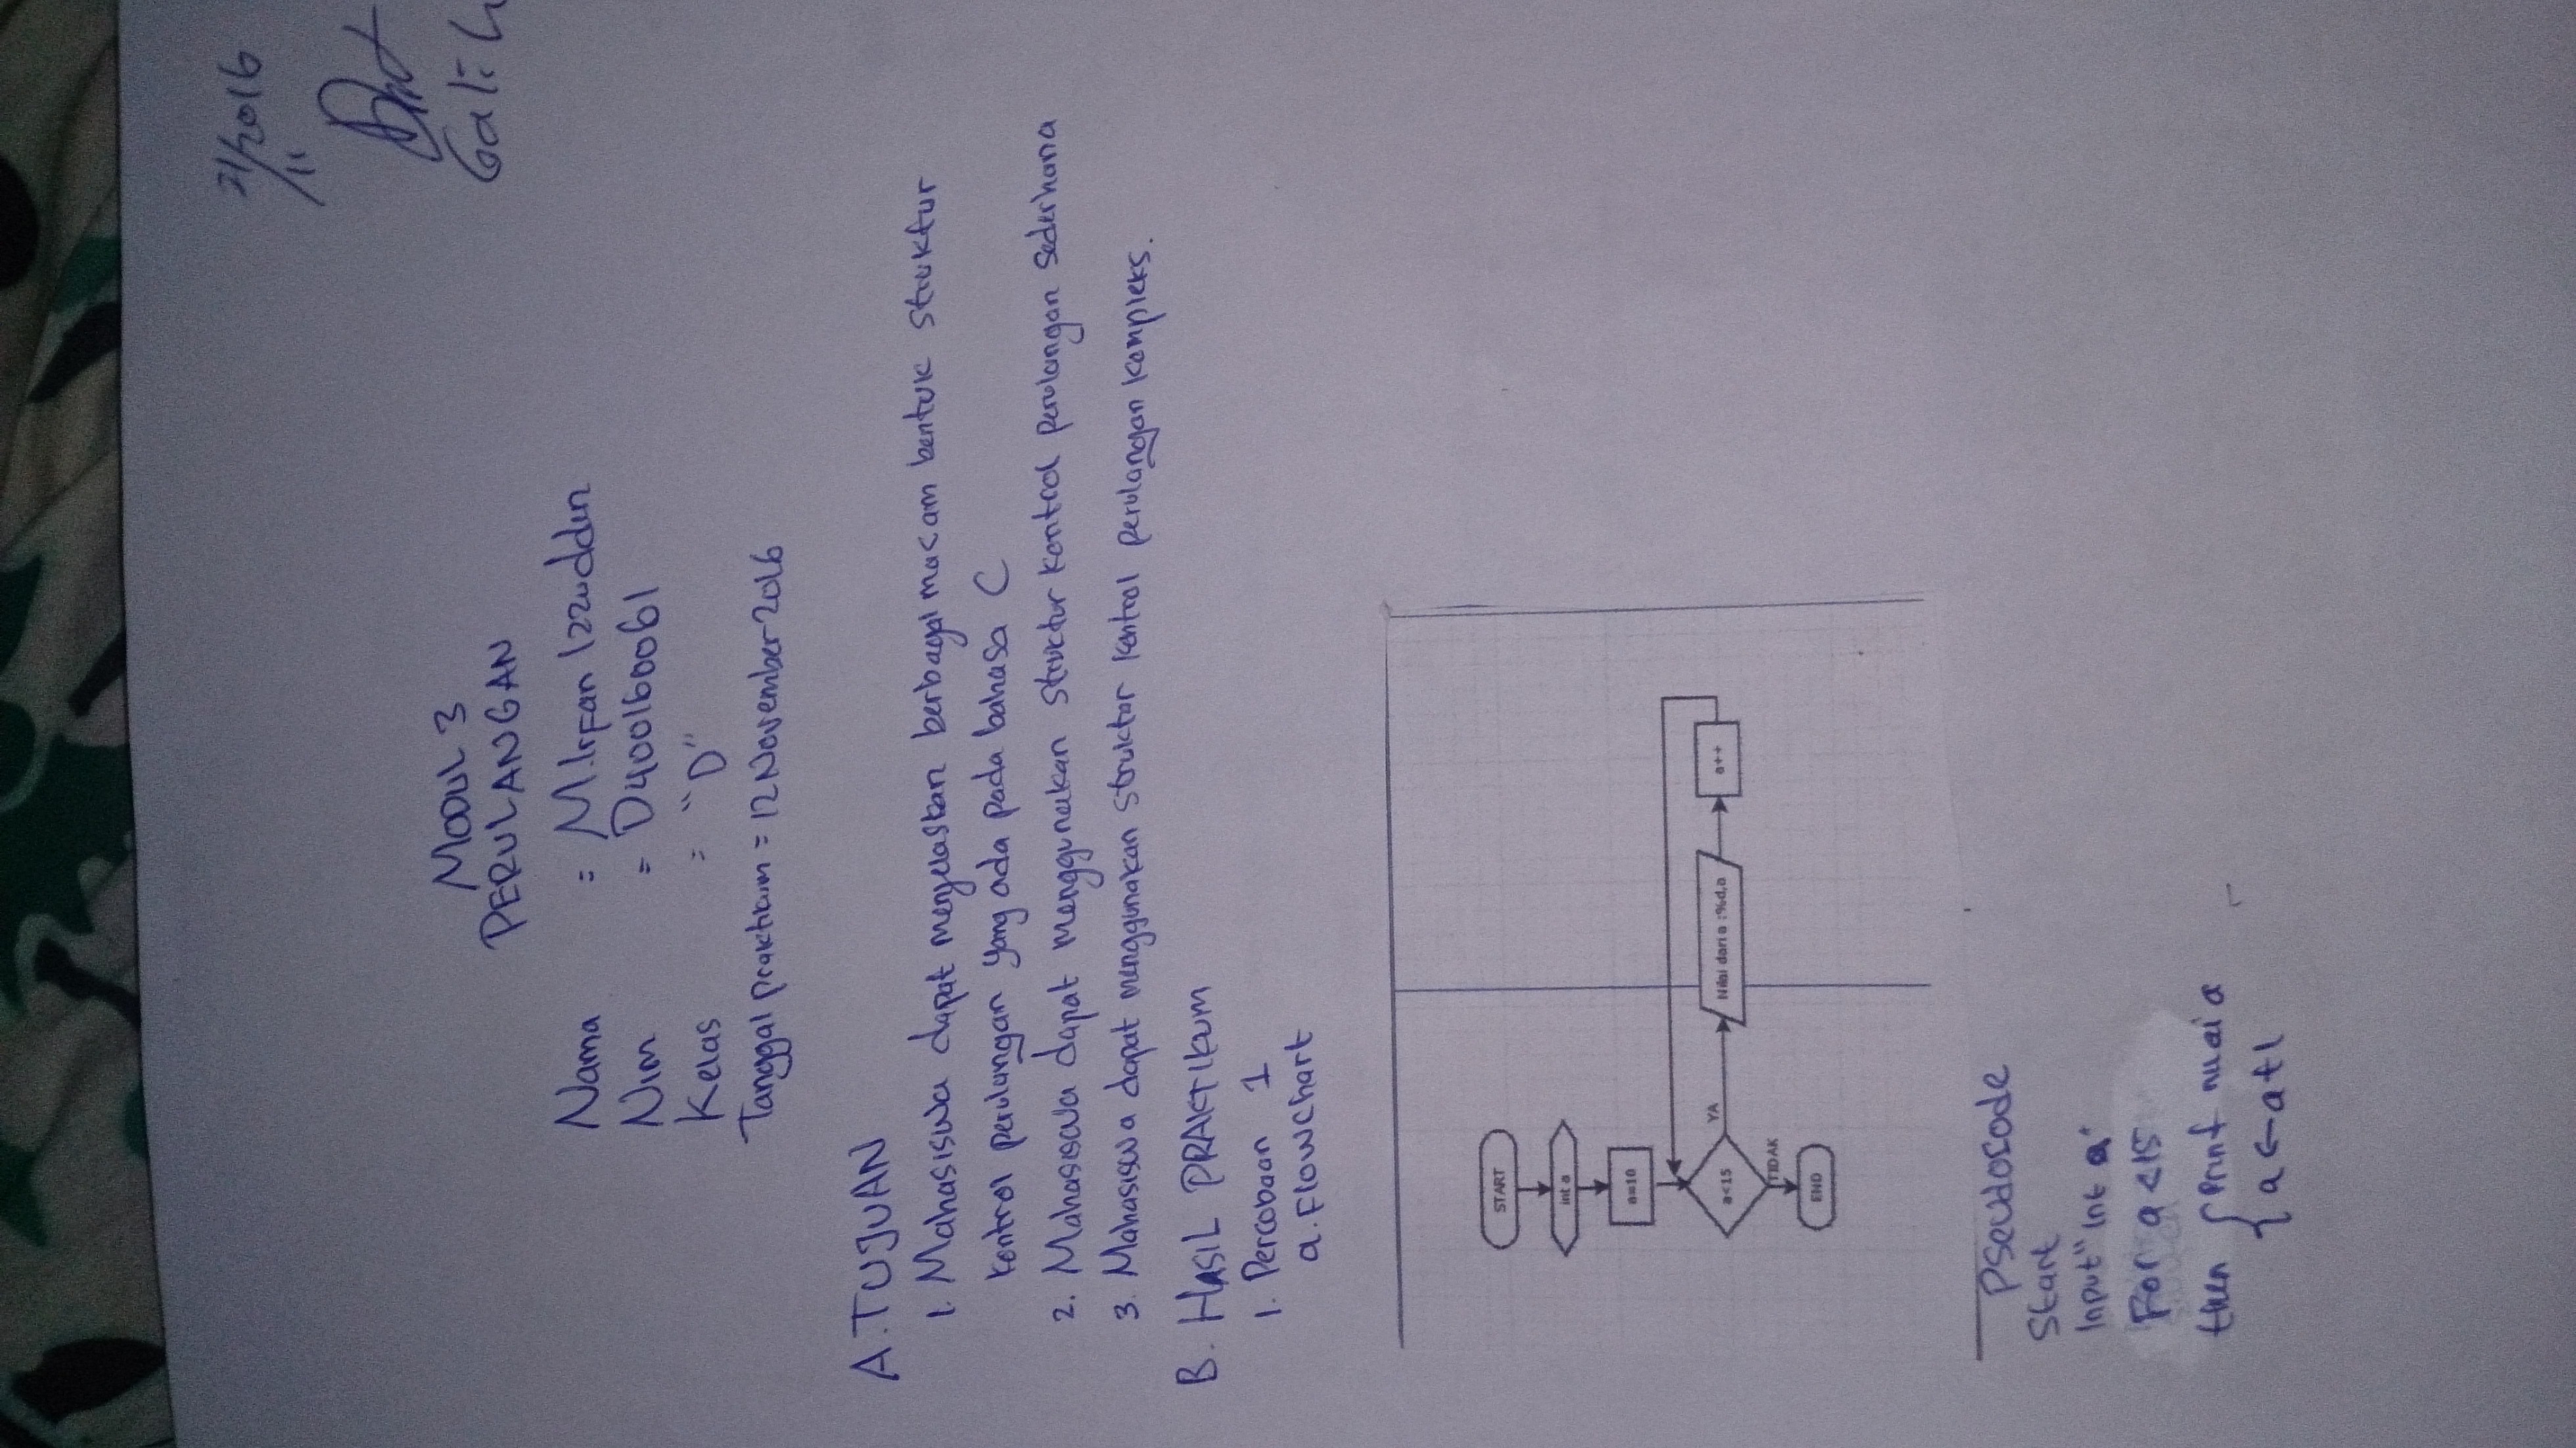 21/2016
/11
Galih
MODUL 3
PERULANGAN
Nama = M.Irfan Izzuddin
Nim = D400160061
Kelas = "D"
Tanggal praktikum = 12 November 2016
A. TUJUAN
1. Mahasiswa dapat menjelaskan berbagai macam bentuk struktur
kontrol perulangan yang ada pada bahasa C
2. Mahasiswa dapat menggunakan struktur kontrol perulangan sederhana
3. Mahasiswa dapat menggunakan struktur kontrol perulangan kompleks.
B. HASIL PRAKTIKUM
1. Percobaan 1
a. Flowchart
START
int a
a=10
a<15
YA
Nilai dari a :%d,a
a++
TIDAK
END
Pseudocode
Start
Input "int a"
For a<15
then { print nilai a
a ← a+1